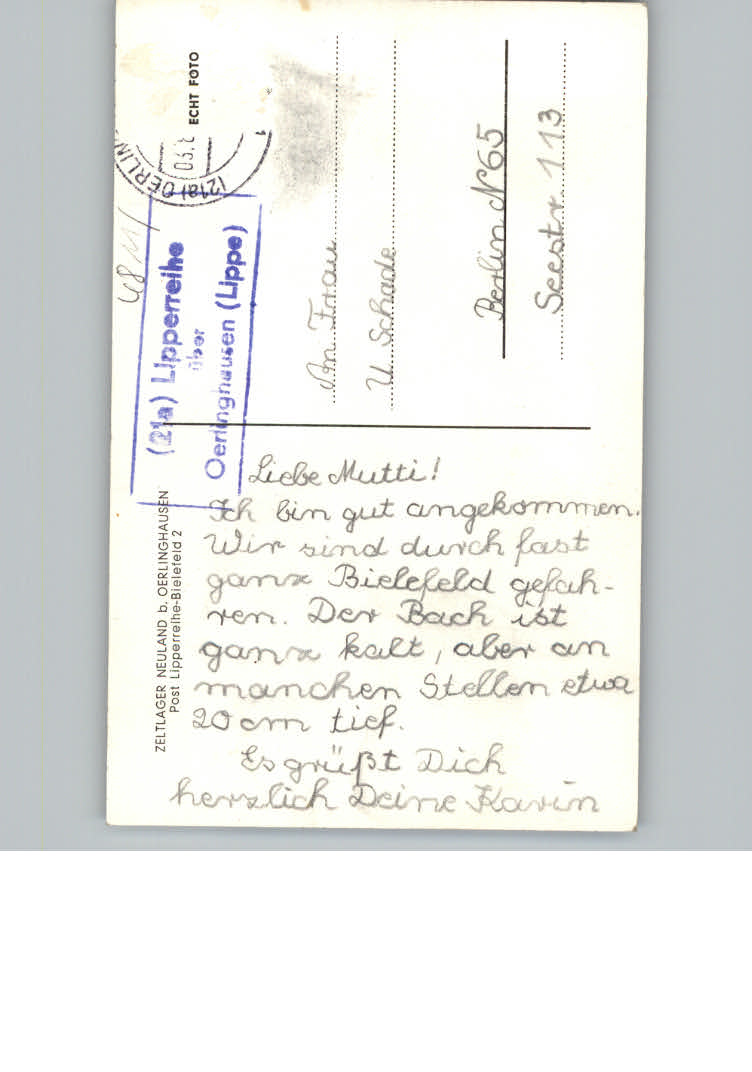 ZELTLAGER NEULAND b. OERLINGHAUSEN
Post Lipperreihe-Bielefeld 2
Liebe Mutti!
Ich bin gut angekommen.
Wir sind durch fast
ganz Bielefeld gefah-
ren. Der Bach ist
ganz kalt, aber an
manchen Stellen etwa
20 cm tief.
Es grüßt Dich
herzlich Deine Karin
(21a) Lipperreihe
über
Oerlinghausen (Lippe)
ECHT FOTO
(21a) OERLIN
03.
An Frau
U Schade
Berlin N 65
Seestr. 113